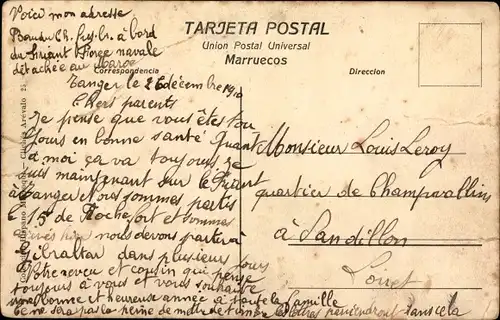 Voici mon adresse
Baudu Ch. fus. br. à bord
du Friant Force navale
détachée au Maroc
TARJETA POSTAL
Union Postal Universal
Marruecos
Correspondencia
Direccion
Tanger le 26 décembre 1910
Chers parents
Je pense que vous êtes tou
jours en bonne santé Quant
à moi ça va toujours je
suis maintenant sur le Friant
à Tanger et nous sommes partis
le 15 de Rochefort et sommes
arrivés hier nous devons partir à
Gibraltar dans plusieurs jours
Votre neveu et cousin qui pense
toujours à vous et vous souhaite
une bonne et heureuse année à toute la famille
Ce ne sera pas la peine de mettre de timbre les lettres viendront sans cela
Monsieur Louis Leroy
quartier de Champvallins
à Sandillon
Loiret
Arévalo